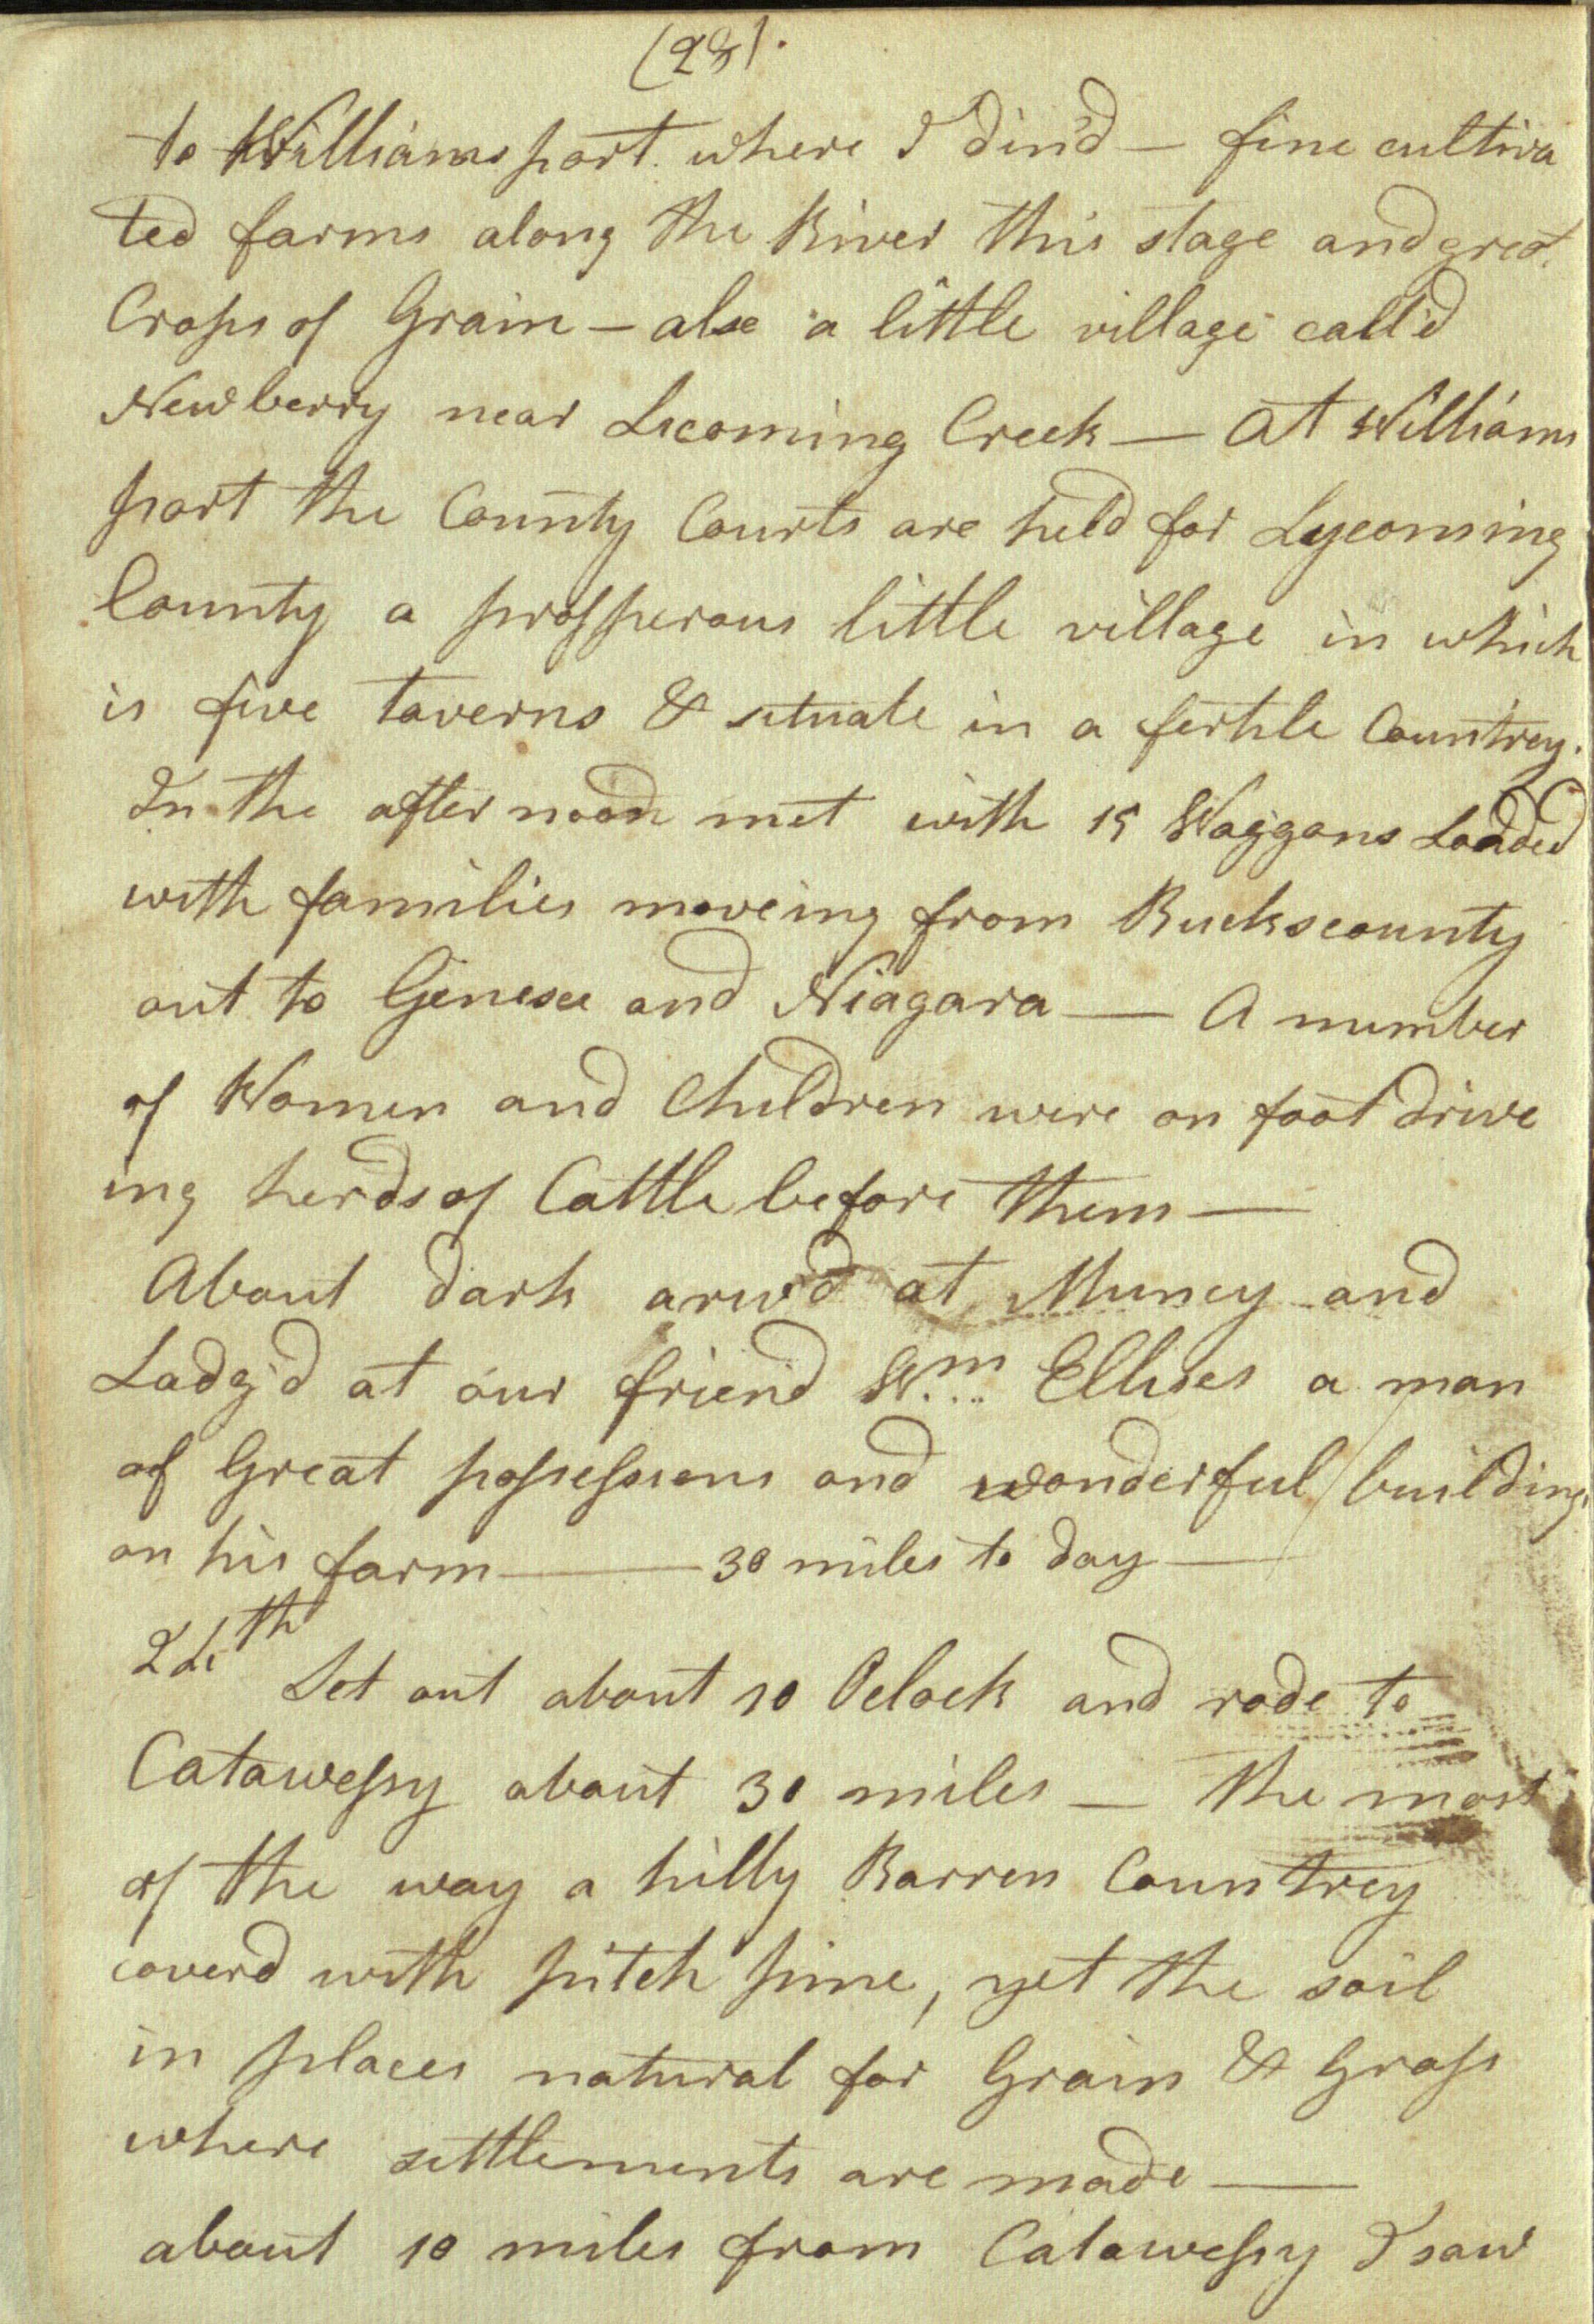 (28).
to Williamsport where I din'd — fine cultiva
ted farms along the River this stage and great
Crops of Grain — also a little village call'd
Newberry near Licoming Creek — At Williams
port the County Courts are held for Lycoming
County a prosperous little village in which
is five taverns & situate in a fertile Countrey.
In the afternoon met with 15 Waggons Loaded
with families moveing from Buckscounty
out to Genesee and Niagara — A number
of Women and Children were on foot drive
ing herds of Cattle before them —
About dark ariv'd at Muncy and
Lodg'd at our friend Wm. Ellises a man
of Great possessions and wonderful buildings
on his farm — 30 miles to day —
24th Set out about 10 Oclock and rode to
Catawessy about 30 miles — the most
of the way a hilly Barren Countrey
coverd with pitch pine, yet the soil
in places natural for Grain & Grass
where settlements are made —
about 10 miles from Catawessy I saw